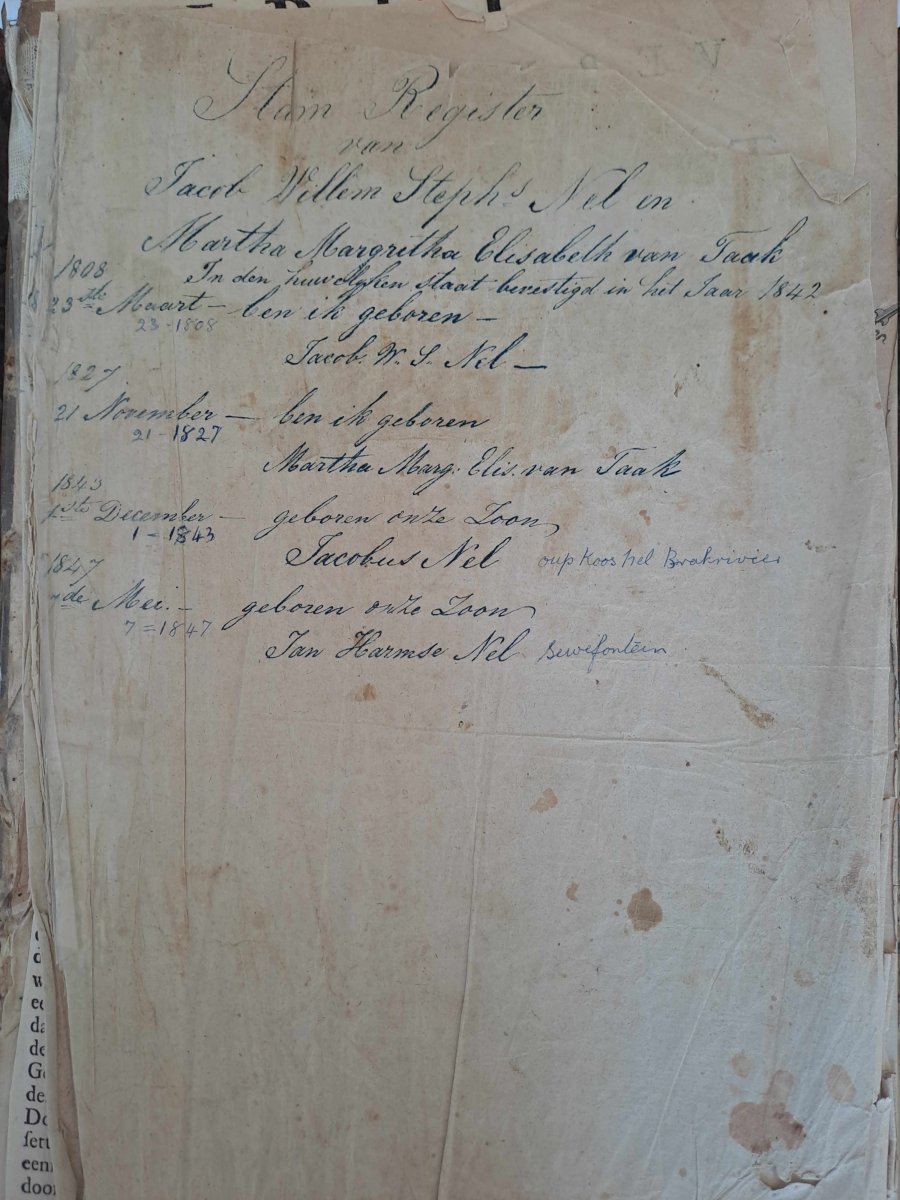 Stam Register
van
Jacob Willem Stephs Nel en
Martha Margritha Elisabeth van Taak
In den huwelyken staat bevestigd in het Jaar 1842
1808
23ste Maart — ben ik geboren —
23-1808
Jacob. W. S. Nel —
1827
21 November — ben ik geboren
21-1827
Martha Marg. Elis. van Taak
1843
1ste December — geboren onze Zoon
1-1843
Jacobus Nel oup Koos Nel Brakrivier
1847
7de Mei. — geboren onze Zoon
7=1847
Jan Harmse Nel Sewefontein
d
w
da
de
de
sert
een
door